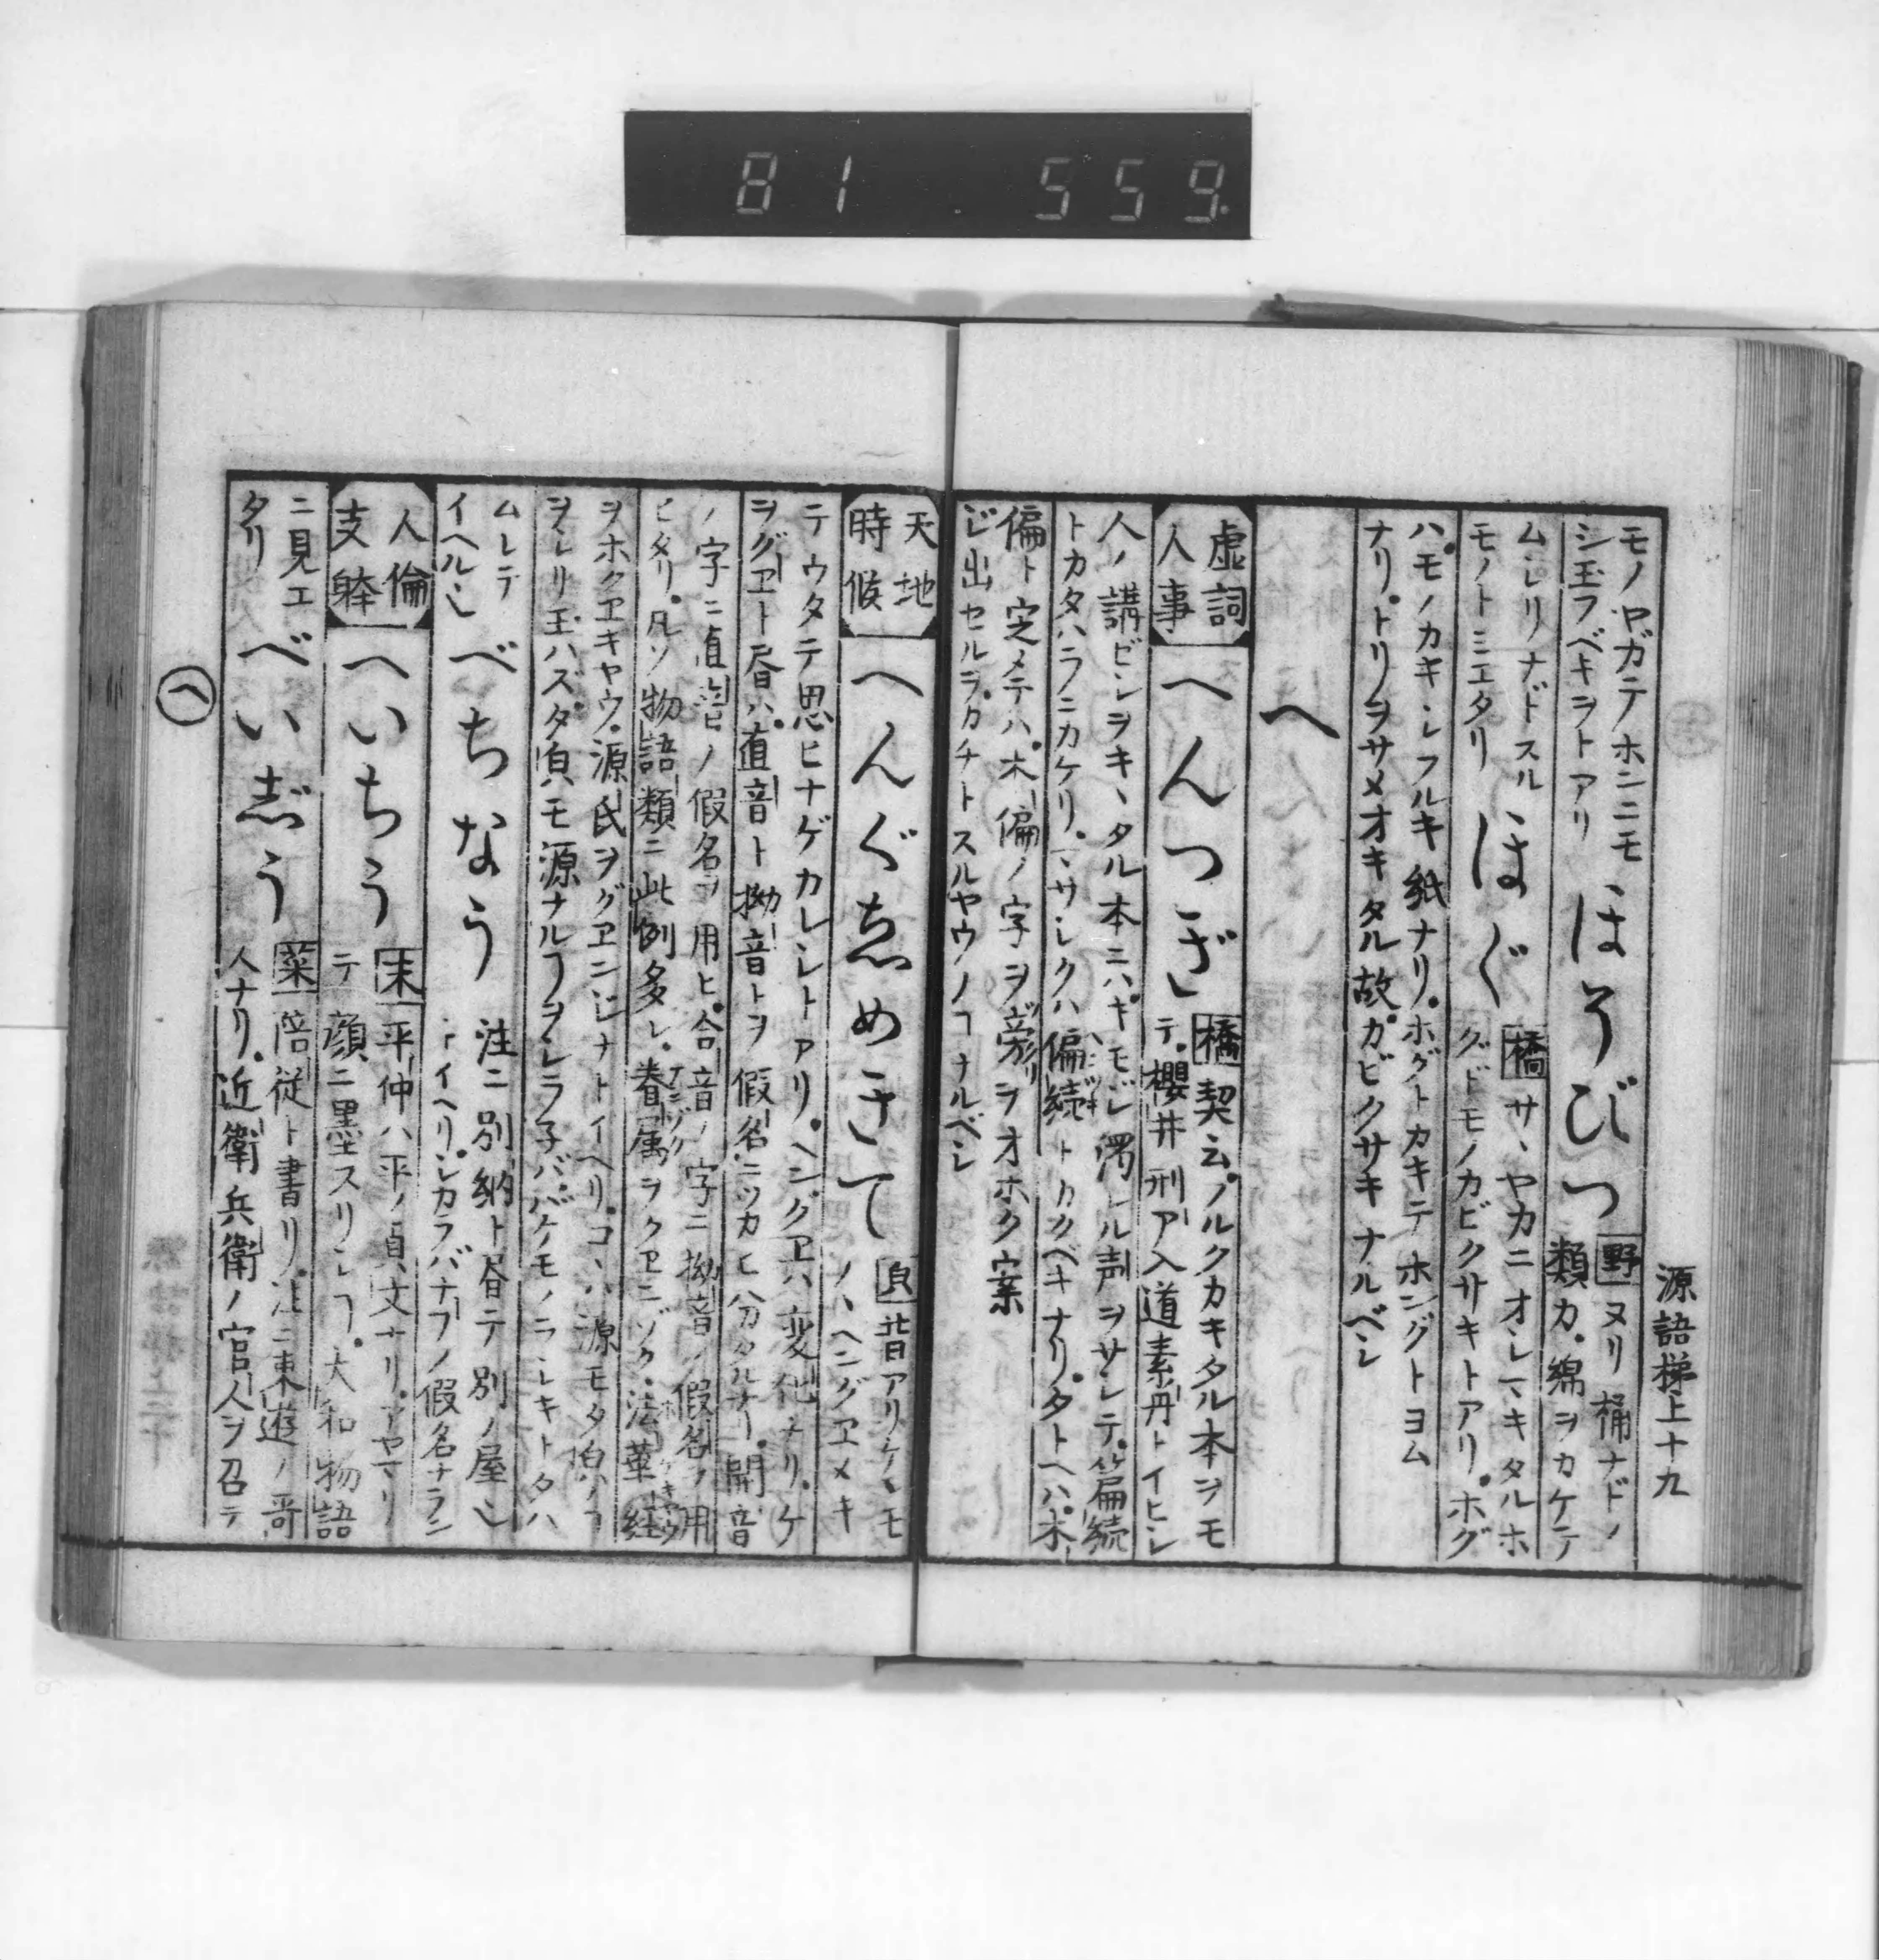 81 559
源語梯上十九
モノヤガテホンニモ
シ玉フベキヲトアリ
ほそびつ
野 ヌリ桶ナドノ
類カ綿ヲカケテ
ムシリナドスル
モノトミエタリ
ほぐ
橋 サヽヤカニオシマキタルホ
グドモノカビクサキトアリ。ホグ
ハモノカキシフルキ紙ナリ。ホグトカキテホングトヨム
ナリ。トリヲサメオキタル故カビクサキナルベシ
へ
虚詞
人事
へんつぎ
橋 契云ノルクカキタル本ヲモ
テ櫻井刑ア入道素丹トイヒシ
人ノ講ゼシヲキヽタル本ニハ。キモジ濁レル声ヲサシテ。篇続
トカタハラニカケリ。マサシクハ偏続トカクベキナリ。タトヘハ。木
偏ト定メテハ。木偏ノ字ヲ旁リヲオホク案
ジ出セルヲカチトスルヤウノコナルベシ
天地
時候
へんぐゑめきて
貝 昔アリケンモ
ノヽヘングヱメキ
テウタテ思ヒナゲカレシトアリ。ヘングヱハ変化ナリ。ケ
ヲグヱト昏ハ。直音ト拗音トヲ假名ニツカヒ分タルナリ。開音
ノ字ニ直音ノ假名ヲ用ヒ。合音ノ字ニ拗音ノ假名ヲ用
ヒタリ。凡ソ物語類ニ此例多シ。眷属ヲクヱニゾク。法華経
ヲホクヱキヤウ。源氏ヲグヱンジナトイヘリ。コヽハ源モタ
ヲレリ玉ハズタ
ムレテ
イヘルシ
べちなう
注ニ別納ト昏テ別ノ屋シ
トイヘリ。シカラバナフノ假名ナラン
人倫
支躰
へいちう
末 平仲ハ平ノ貞文ナリ。アヤマリ
テ顔ニ墨スリシフ。大和物語
ニ見エ
タリ
べいじう
菜 陪従ト書リ。注ニ東遊ノ哥
人ナリ。近衛兵衛ノ官人ヲ召テ
へ